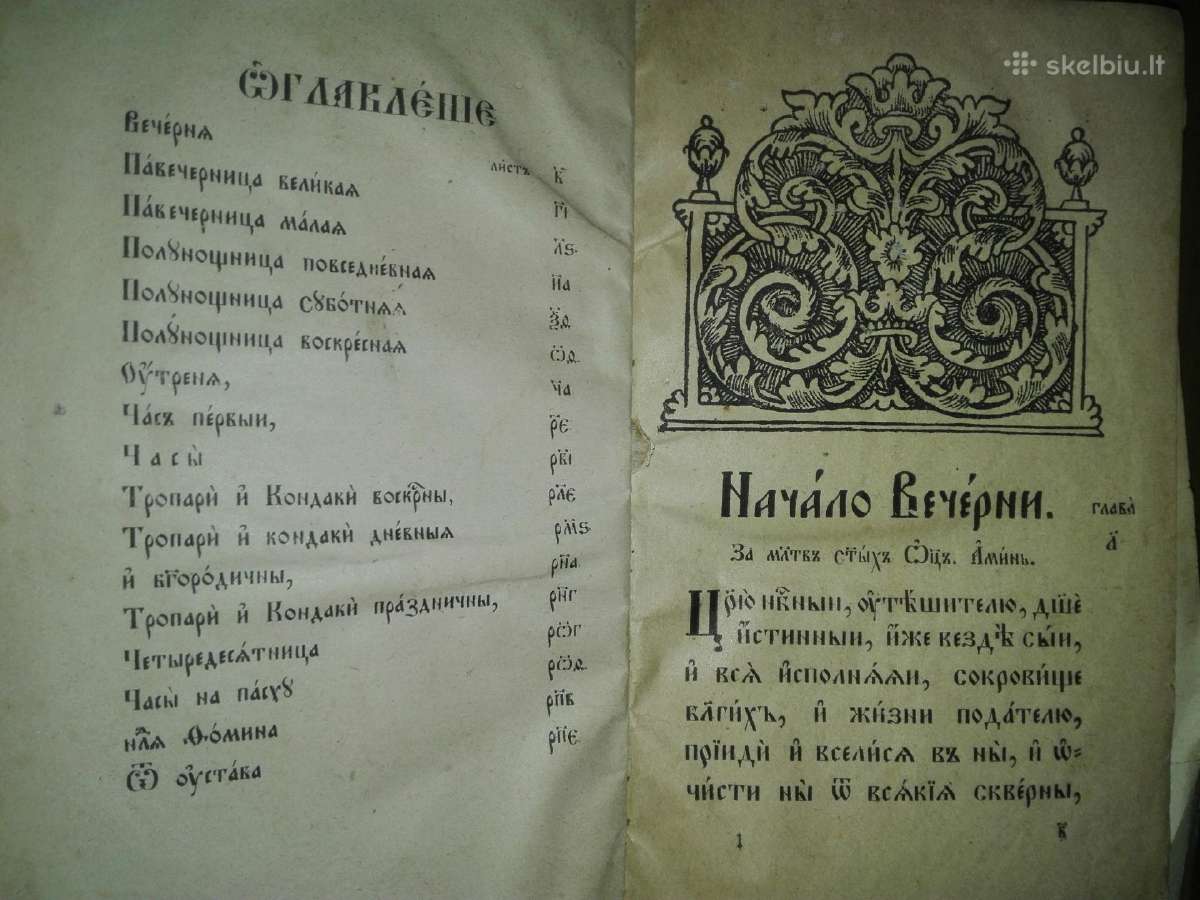 Ѽглавле́нїе
Вече́рня
листъ в҃
Па́вечерница вели́кая г҃і
Па́вечерница ма́лая л҃ѕ
Полꙋнощница повседне́вная н҃а
Полꙋнощница сꙋбо́тная ѯ҃д
Полꙋ́нощница воскре́сная ѻ҃д
Оу҆́треня, ч҃а
Ча́съ пе́рвыи, р҃е
Часы̀ рв҃і
Тропарѝ и҆ Кондакѝ воскр҇ны, рл҃е
Тропарѝ и҆ кондакѝ дне́вныя рм҃ѕ
и҆ бг҃оро́дичны, рн҃а
Тропарѝ и҆ Кондакѝ пра́здничны, рн҃г
Четыредеся́тница рѻ҃г
Часы̀ на па́схꙋ рѻ҃д
нл҃я Ѳо́мина рп҃в
Ѿ оу҆ста́ва рп҃е
skelbiu.lt
Нача́ло Вече́рни.
глава̀
а҃
За мл҃твъ ст҃ыхъ Ѻ҆ц҃ъ. А҆ми́нь.
Цр҃ю̀ нб҇ныи, оу҆тѣ́шителю, дш҃е
и҆́стинныи, и҆́же вездѣ̀ сы́и,
и҆ вся̀ и҆сполня́яи, сокро́вище
бл҃ги́хъ, и҆ жи́зни пода́телю,
прїидѝ и҆ всели́ся въ ны̀, и҆ ѡ҆-
чи́сти ны̀ ѿ вся́кїя скве́рны,
1
в҃